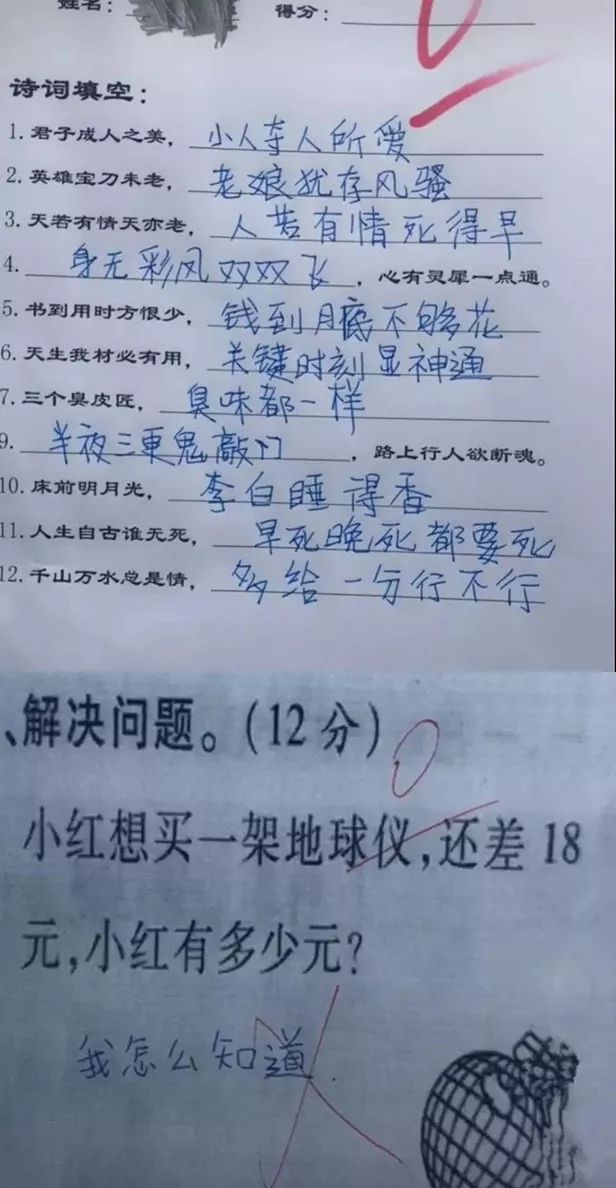 姓名：
得分：
诗词填空：
1. 君子成人之美，小人夺人所爱
2. 英雄宝刀未老，老娘犹存风骚
3. 天若有情天亦老，人若有情死得早
4. 身无彩凤双双飞，心有灵犀一点通。
5. 书到用时方恨少，钱到月底不够花
6. 天生我材必有用，关键时刻显神通
7. 三个臭皮匠，臭味都一样
9. 半夜三更鬼敲门，路上行人欲断魂。
10. 床前明月光，李白睡得香
11. 人生自古谁无死，早死晚死都要死
12. 千山万水总是情，多给一分行不行
、解决问题。(12 分) 0
小红想买一架地球仪，还差 18
元，小红有多少元？
我怎么知道.